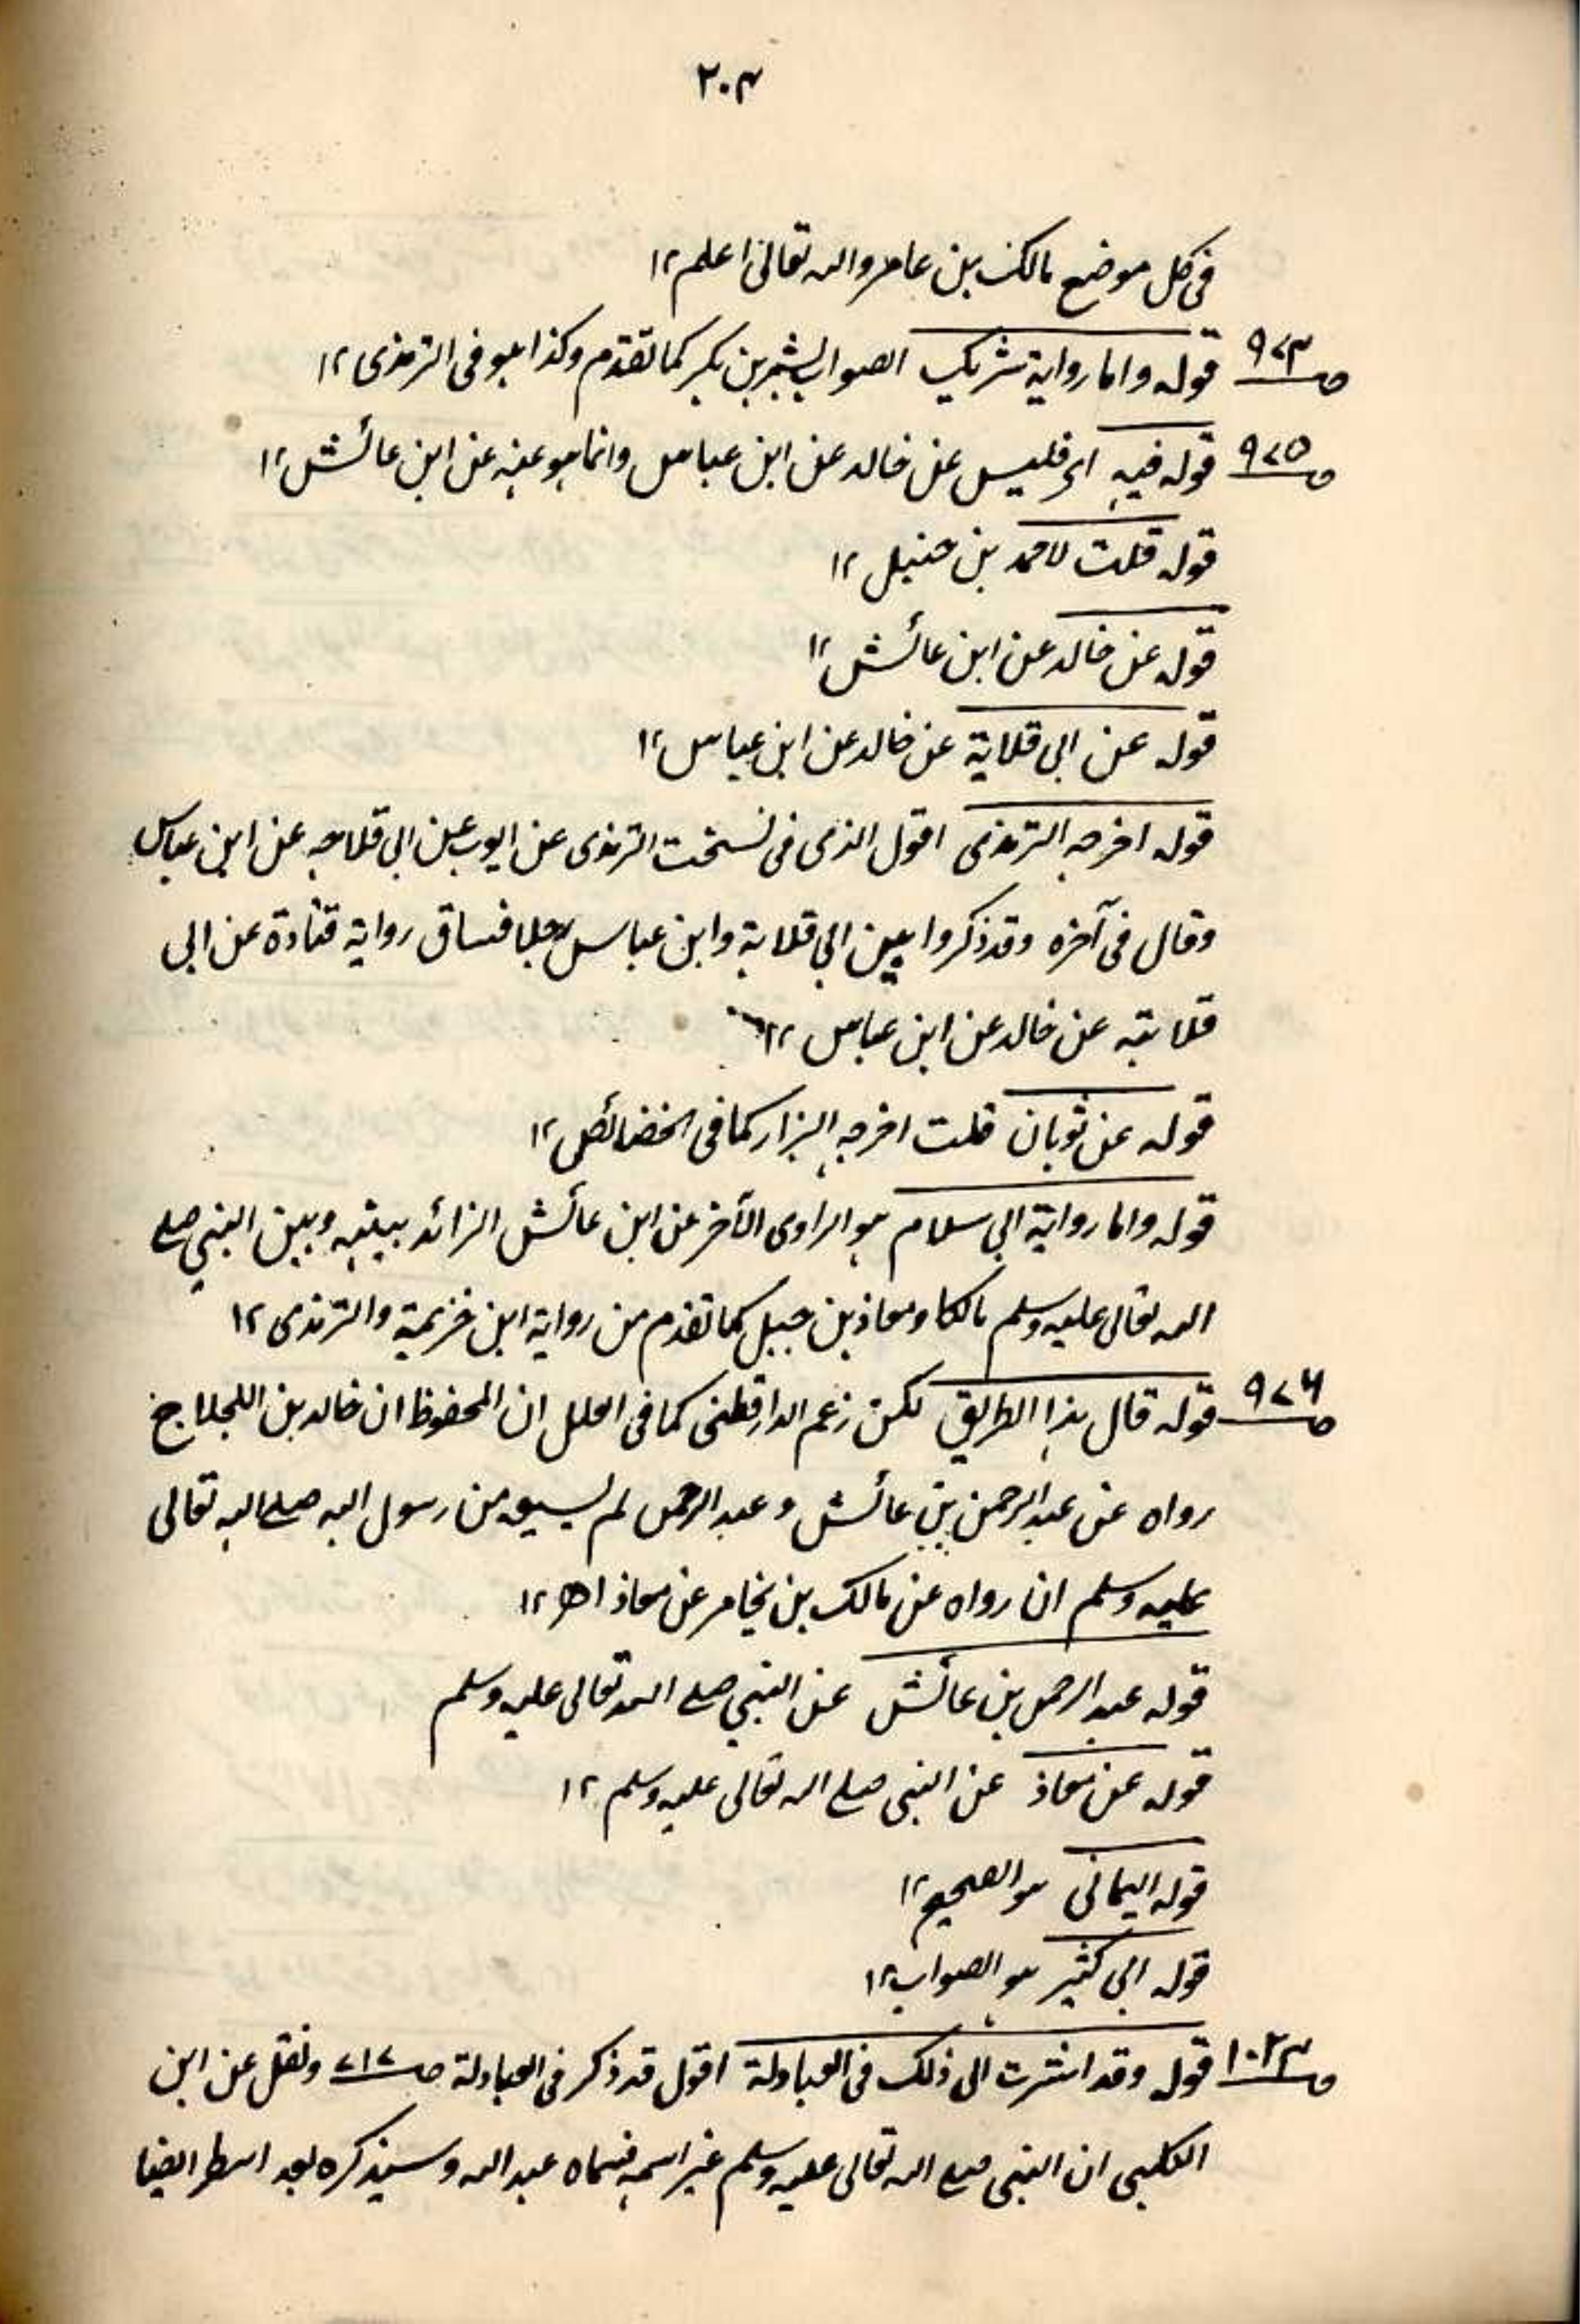 ٢٠٤
فی كل موضع مالك بن عامر والله تعالیٰ اعلم ١٢
ص٩٧٤ قوله واما رواية شريك الصواب بشر بن بكر كما تقدم وكذا هو فی الترمذی ١٢
ص٩٧٥ قوله فيه ای فليس عن خالد عن ابن عباس وانما هو عنه عن ابن عائش ١٢
قوله قلت لاحمد بن حنبل ١٢
قوله عن خالد عن ابن عائش ١٢
قوله عن ابی قلابة عن خالد عن ابن عباس ١٢
قوله اخرجه الترمذی اقول الذی فی نسختی الترمذی عن ايوب عن ابی قلابه عن ابن عباس
وقال فی آخره وقد ذكروا بين ابی قلابة وابن عباس رجلا فساق رواية قتادة عن ابی
قلابته عن خالد عن ابن عباس ١٢
قوله عن ثوبان قلت اخرجه البزار كما فی الخصائص ١٢
قوله واما رواية ابی سلام هو الراوی الآخر عن ابن عائش الزائد بينه وبين النبی صلے
الله تعالی عليه وسلم مالكا ومعاذ بن جبل كما تقدم من رواية ابن خزيمة والترمذی ١٢
ص٩٧٦ قوله قال هذا الطريق لكن زعم الدارقطنی كما فی العلل ان المحفوظ ان خالد بن اللجلاج
رواه عن عبد الرحمن بن عائش و عبد الرحمن لم يسمع من رسول الله صلے الله تعالی
عليه وسلم ان رواه عن مالك بن يخامر عن معاذ اھ ١٢
قوله عبد الرحمن بن عائش عن النبی صلے الله تعالی عليه وسلم
قوله عن معاذ عن النبی صلے الله تعالی عليه وسلم ١٢
قوله اليمانی هو الصحيح ١٢
قوله ابی كثير هو الصواب ١٢
ص١٠٢٤ قوله وقد اشرت الی ذلك فی العبادلة اقول قد ذكر فی العبادلة ص٧١٧ ونقل عن ابن
الكلبی ان النبی صلے الله تعالی عليه وسلم غير اسمه فسماه عبد الله وسيذكره بعد اسطر ايضا